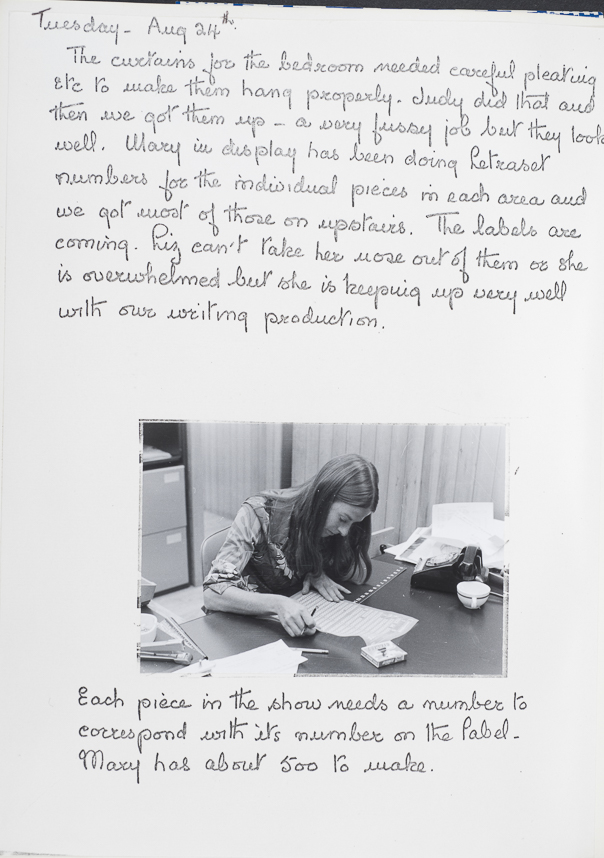 Tuesday - Aug 24th.
The curtains for the bedroom needed careful pleating
etc to make them hang properly. Judy did that and
then we got them up - a very fussy job but they look
well. Mary in display has been doing Letraset
numbers for the individual pieces in each area and
we got most of those on upstairs. The labels are
coming. Liz can't take her nose out of them or she
is overwhelmed but she is keeping up very well
with our writing production.
Each piece in the show needs a number to
correspond with its number on the label -
Mary has about 500 to make.